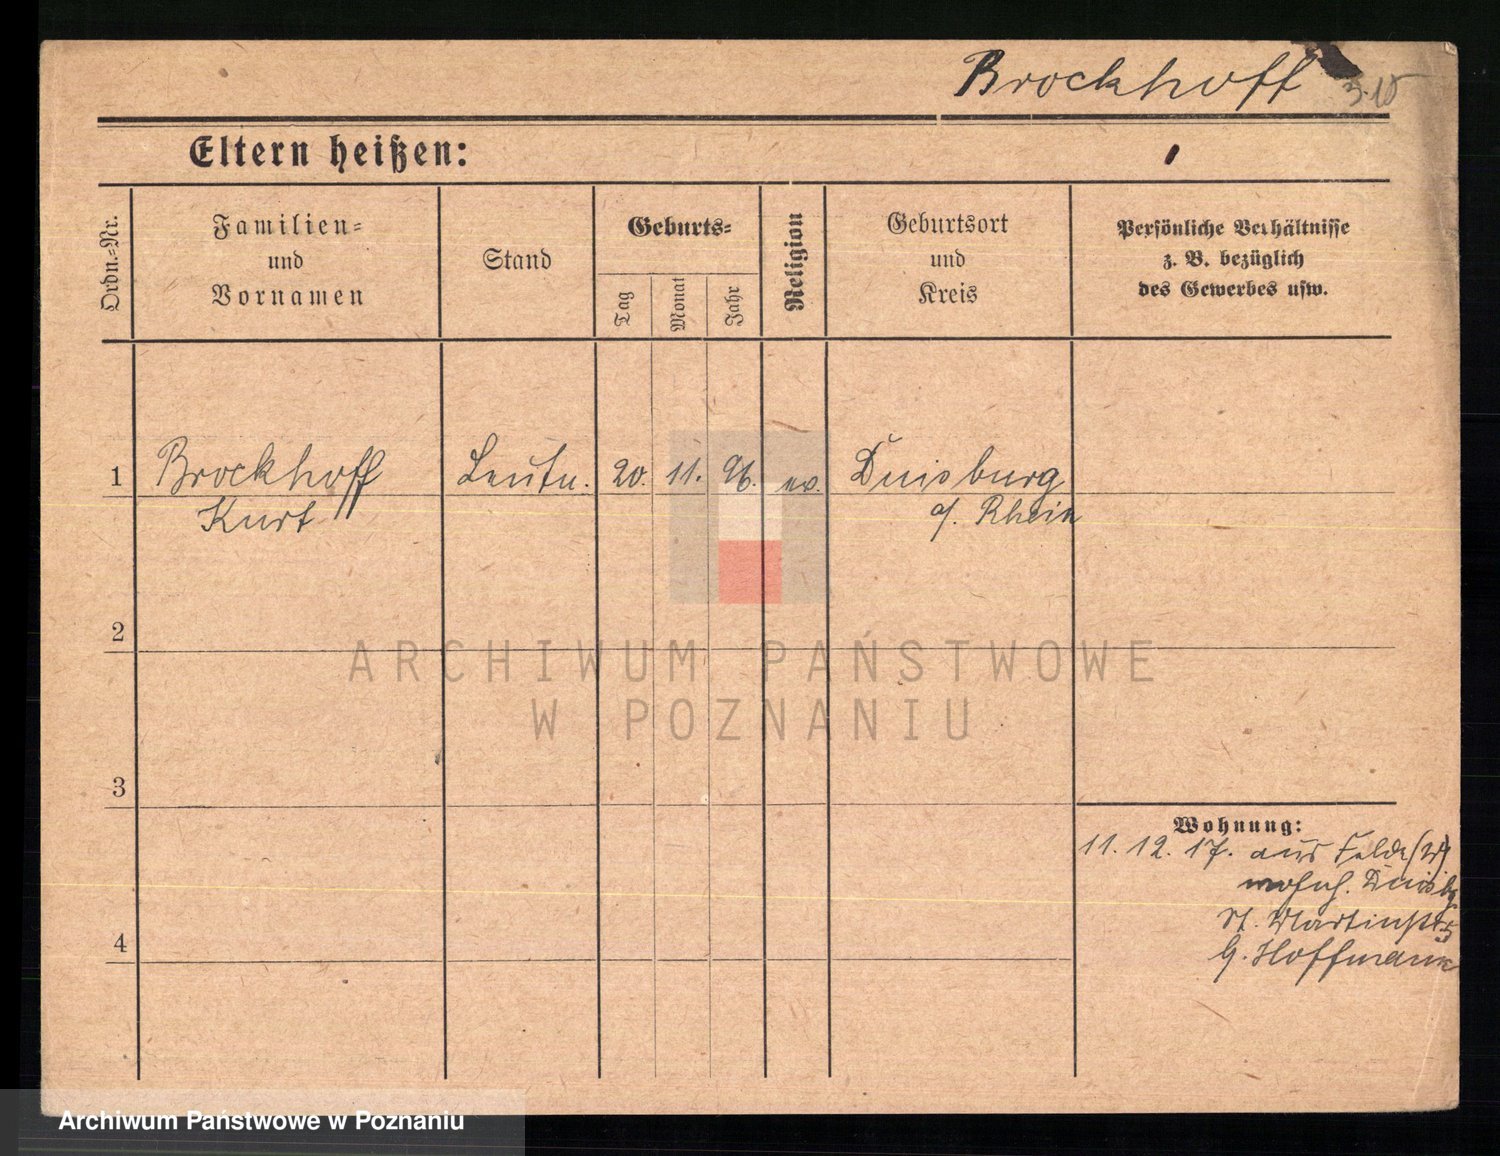 Brockhoff
Eltern heißen:
Ordn.-Nr.
Familien-
und
Vornamen
Stand
Geburts-
Tag
Monat
Jahr
Religion
Geburtsort
und
Kreis
Persönliche Verhältnisse
z. B. bezüglich
des Gewerbes usw.
1 Brockhoff Leutn. 20. 11. 96. ev. Duisburg
Kurt a/. Rhein
2
3
4
Wohnung:
11. 12. 17. aus Felde
wohnh. Duisbg
St. Martinstr
b. Hoffmann
ARCHIWUM PAŃSTWOWE
W POZNANIU
Archiwum Państwowe w Poznaniu